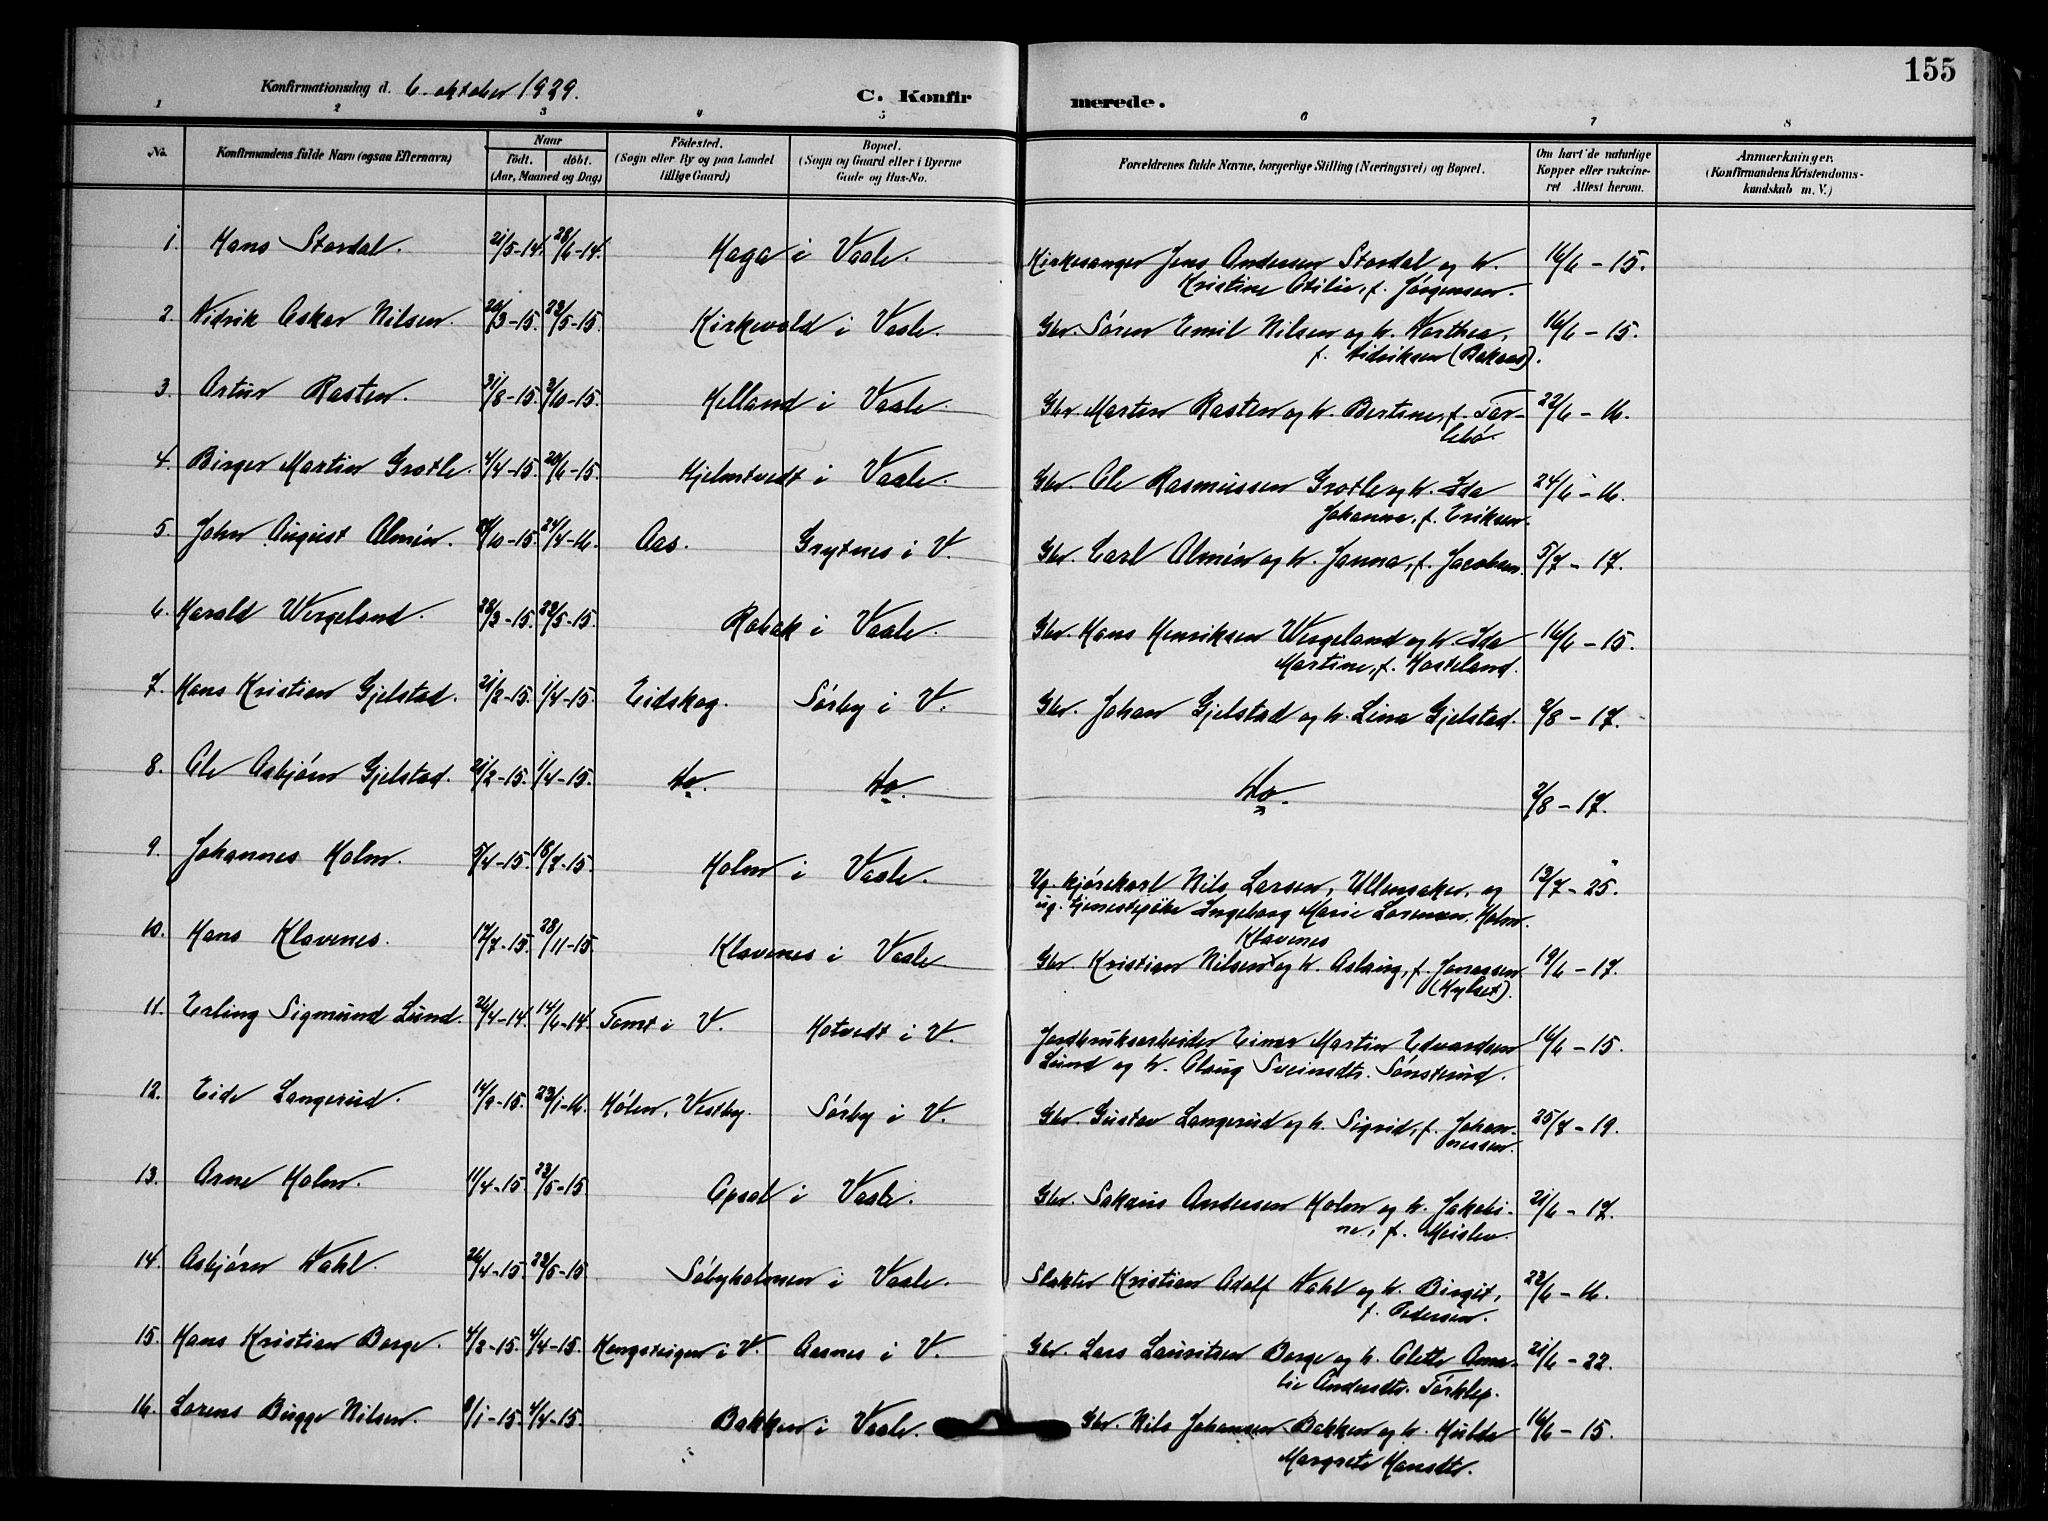 155
Konfirmationsdag d. 6. oktober 1929. C. Konfirmerede.
1 2 3 4 5 6 7 8
No. Konfirmandens fulde Navn (ogsaa Efternavn) Naar Födt. döbt. (Aar, Maaned og Dag) Födested. (Sogn eller By og paa Landet tillige Gaard) Bopæl. (Sogn og Gaard eller i Byerne Gade og Hus-No. Forældrenes fulde Navne, borgerlige Stilling (Næringsvei) og Bopæl. Om havt de naturlige Kopper eller vakcineret Attest herom. Anmærkninger. (Konfirmandens Kristendomskundskab m. V.)
1. Hans Stordal. 21/5-14. 28/6-14. Haga i Vaale. Kirkesanger Jens Andersen Stordal og h. 16/6 - 15.
Kristine Otilie, f. Jørgensen.
2. Didrik Oskar Nilsen. 20/3-15. 23/5-15. Kirkevold i Vaale. Gbr. Søren Emil Nilsen og h. Dorthea, 16/6 - 15.
f. Didriksen (Bakaas).
3. Artur Rasten. 31/8-15. 3/10-15. Helland i Vaale. Gbr. Martin Rasten og h. Bertine, f. Tor- 22/6 - 16.
lebø.
4. Birger Martin Grotle. 4/4-15. 20/6-15. Hjelmtvedt i Vaale. Gbr. Ole Rasmussen Grotle og h. Ida 24/6 - 16.
Johanne, f. Eriksen.
5. John August Almén. /10-15. 24/4-16. Aas. Grytnes i V. Gbr. Carl Almén og h. Janna, f. Jacobsen. 5/7 - 17.
6. Harald Wergeland. 28/3-15. 23/5-15. Robak i Vaale. Gbr. Hans Henriksen Wergeland og h. Ida 16/6 - 15.
Martine, f. Hasteland.
7. Hans Kristian Gjelstad. 21/2-15. 1/4-15. Eidskog. Sørby i V. Gbr. Johan Gjelstad og h. Lina Gjelstad. 2/8 - 17.
8. Ole Asbjørn Gjelstad. 21/2-15. 1/4-15. Do. Do. Do. 2/8 - 17.
9. Johannes Holm. 9/4-15. 18/7-15. Holm i Vaale. Ug. kjørekarl Nils Larsen, Ullensaker, og 13/7 - 25.
ug. tjenestepike Ingeborg Marie Lorensen, Holm.
10. Hans Klavenes. 17/7-15. 28/11-15. Klavenes i Vaale Klavenes
Gbr. Kristian Nilsen og h. Aslaug, f. Jonassen 19/6 - 17.
(Kylset).
11. Erling Sigmund Lund. 26/4-14. 14/6-14. Tomt i V. Hotvedt i V. Jordbruksarbeider Einar Martin Edvardsen 16/6 - 15.
Lund og h. Olaug Sveinsdtr. Sønsterud.
12. Eide Langerud. 14/9-15. 23/1-16. Hølen, Vestby. Sørby i V. Gbr. Gustav Langerud og h. Sigrid, f. Johan- 25/8 - 19.
nessen.
13. Arne Holm. 11/4-15. 23/5-15 Opsal i Vaale. Gbr. Sakaus Andersen Holm og h. Jakobi- 21/6 - 17.
ne, f. Meisler.
14. Asbjørn Dahl. 26/4-15. 23/5-15 Søbyholmen i Vaale. Slakter Kristian Adolf Dahl og h. Birgit, 22/6 - 16.
f. Pedersen.
15. Hans Kristian Borge. 4/2-15. 4/4-15. Hengsteigen i V. Aasnes i V. Gbr. Lars Lauritsen Borge og h. Olette Ama- 21/6 - 22.
lie Andersdtr. Tørklep.
16. Lorens Bugge Nilsen. 9/1-15. 4/4-15. Bakken i Vaale. Gbr. Nils Johansen Bakken og h. Hulda 16/6 - 15.
Margrete Hansdtr.